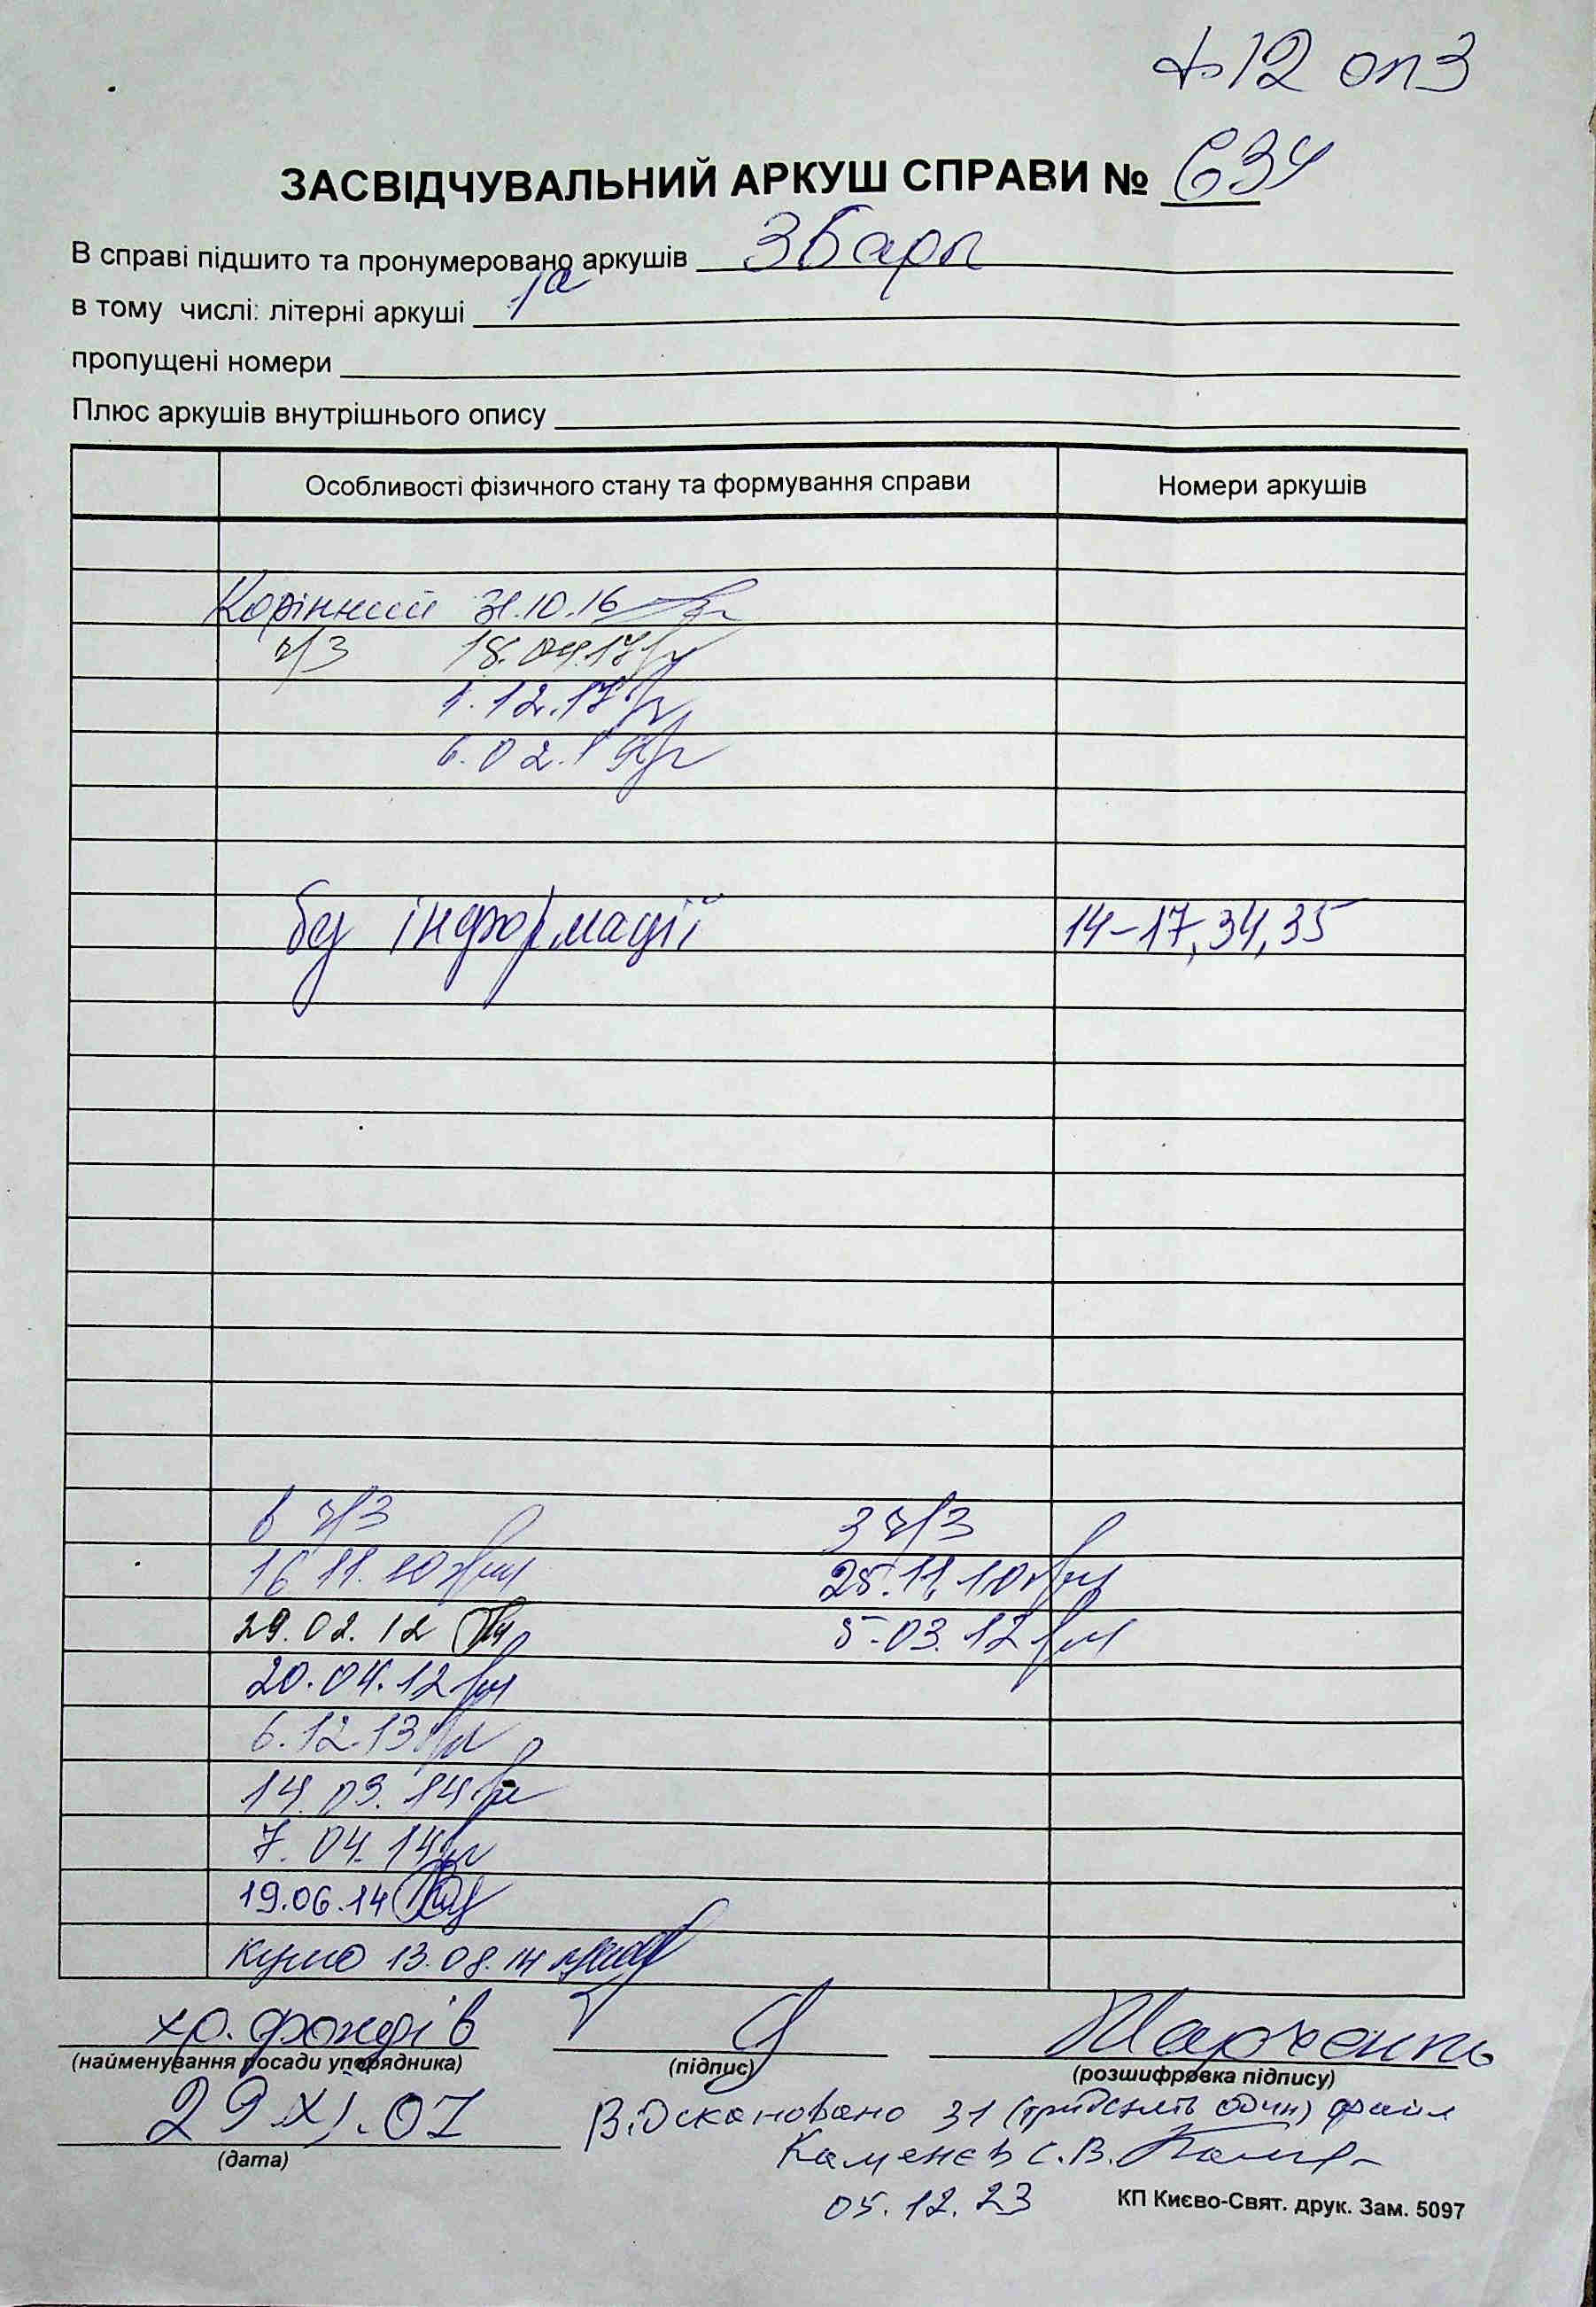 ф. 12 оп 3
ЗАСВІДЧУВАЛЬНИЙ АРКУШ СПРАВИ № 634
В справі підшито та пронумеровано аркушів 36 арк
в тому числі: літерні аркуші 1а
пропущені номери
Плюс аркушів внутрішнього опису
Особливості фізичного стану та формування справи Номери аркушів
Корінний 31.10.16
ч/з 18.04.17
1.12.17
6.02.19
без інформації 14-17, 34, 35
в ч/з З ч/з
16 11. 10 25.11.10
29.02.12 5.03.12
20.04.12
6.12.13
14.03.14
7.04.14
19.06.14
13.08.14
хр. фондів Марченко
(найменування посади упорядника) (підпис) (розшифровка підпису)
29 XI. 07 Відскановано 31 (тридцять один) файл
(дата) Каменєв С.В.
05.12.23 КП Києво-Свят. друк. Зам. 5097